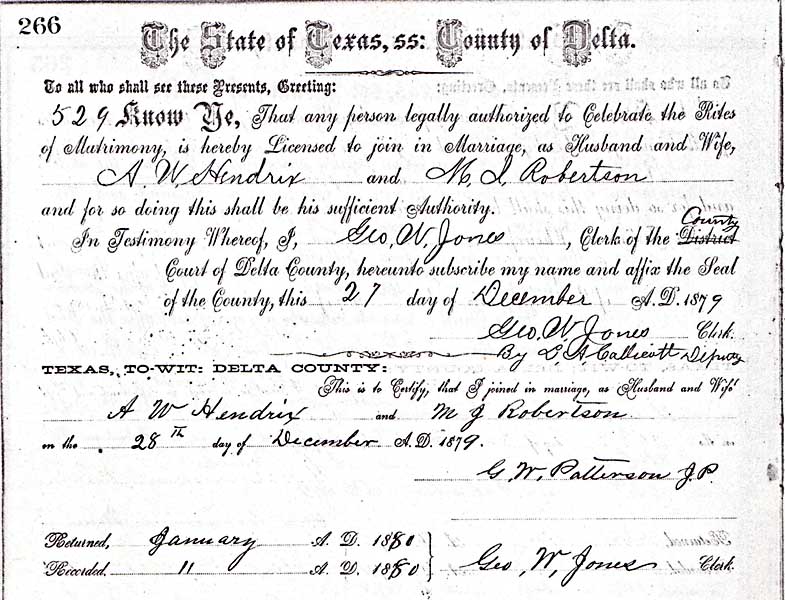 266
The State of Texas, ss: County of Delta.
To all who shall see these Presents, Greeting:
529 Know Ye, That any person legally authorized to Celebrate the Rites
of Matrimony, is hereby Licensed to join in Marriage, as Husband and Wife,
A. W. Hendrix and M. J. Robertson
and for so doing this shall be his sufficient Authority.
County
In Testimony Whereof, I, Geo. W. Jones, Clerk of the District
Court of Delta County, hereunto subscribe my name and affix the Seal
of the County, this 27 day of December A.D. 1879
Geo. W Jones Clerk.
By L A Callicott Deputy
TEXAS, TO-WIT: DELTA COUNTY:
This is to Certify, that I joined in marriage, as Husband and Wife
A W Hendrix and M J Robertson
on the 28th day of December A.D. 1879.
G. W. Patterson J.P.
Returned, January A. D. 1880
Recorded. " A. D. 1880
Geo, W, Jones Clerk.